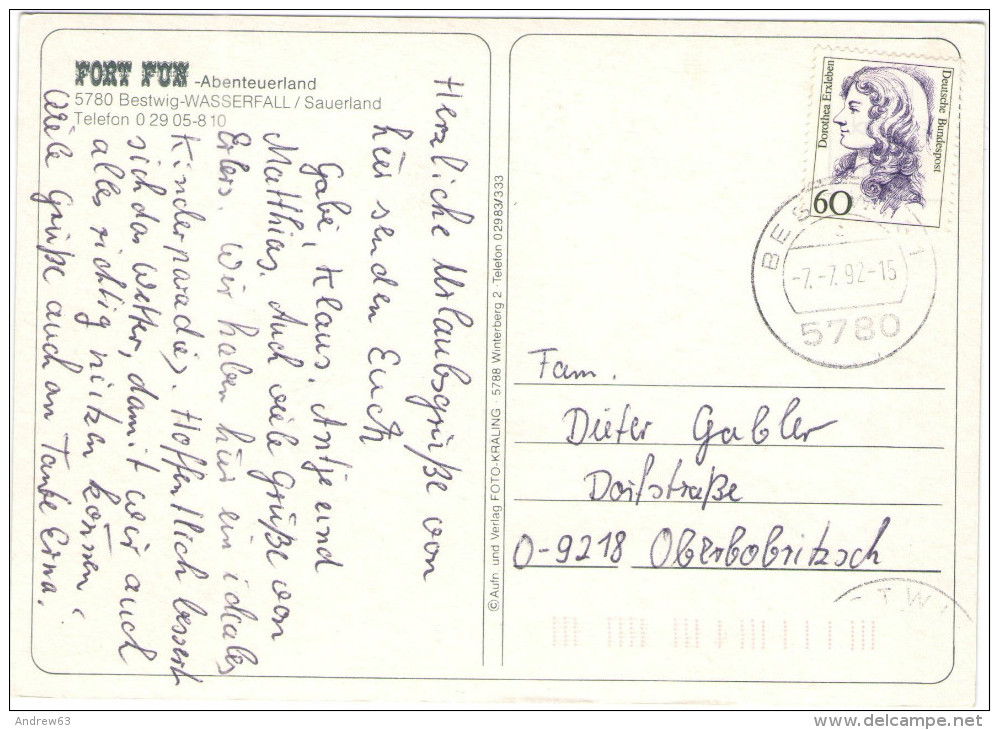 FORT FUN -Abenteuerland
5780 Bestwig-WASSERFALL / Sauerland
Telefon 0 29 05-8 10
Herzliche Urlaubsgrüße von
hier senden Euch
Gabi, Klaus, Antje und
Matthias. Auch viele Grüße von
Erlers. Wir haben hier ein ideales
Kinderparadies. Hoffentlich bessert
sich das Wetter, damit wir auch
alles richtig nützen können.
Viele Grüße auch an Tante Erna.
© Aufn und Verlag FOTO-KRALING · 5788 Winterberg 2 · Telefon 02983/333
Dorothea Erxleben
Deutsche Bundespost
60
BES
-7.-7.92-15
5780
Fam.
Dieter Gabler
Dorfstraße
O-9218 Oberbobritzsch
STWI
Andrew63
delcampe.net